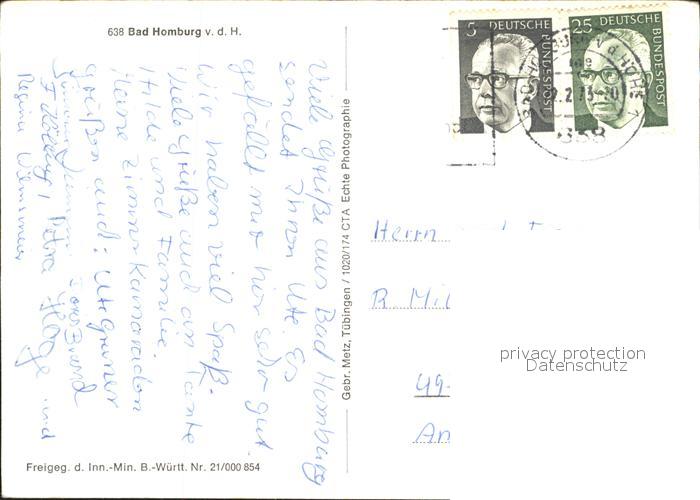 638 Bad Homburg v. d. H.
Viele Grüße aus Bad Homburg
sendet Ihnen Ute. Es
gefällt mir hir sehr gut.
Wir haben viel Spaß.
Viele Grüße auch an Tante
Hilde und Familie.
Meine Zimmerkamaraden
grüßen auch: Ute
und
Petra
Regina
Freigeg. d. Inn.-Min. B.-Württ. Nr. 21/000 854
Gebr. Metz, Tübingen / 1020/174 CTA Echte Photographie
5 DEUTSCHE BUNDESPOST
25 DEUTSCHE BUNDESPOST
v. d. HÖHE 1
638
Herrn
R. Mil
49-
An
privacy protection
Datenschutz